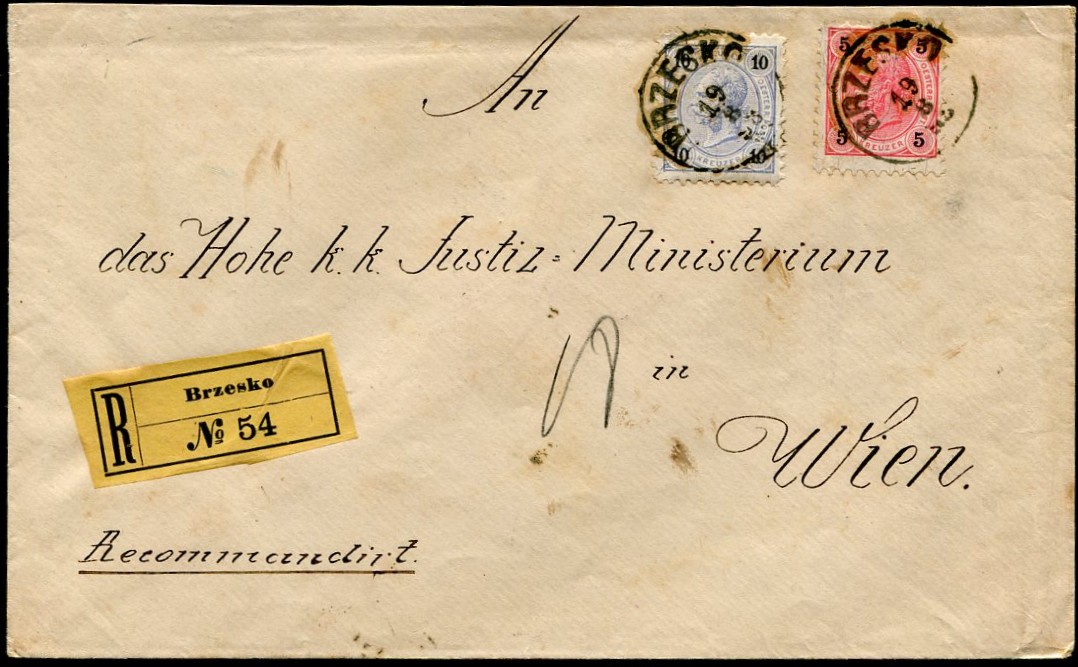 An
BRZESKO
19
8
10
10
KREUZER
BRZESKO
19
8
5
5
5
5
KREUZER
das Hohe k. k. Justiz= Ministerium
in
Wien.
R
Brzesko
№ 54
Recommandirt.